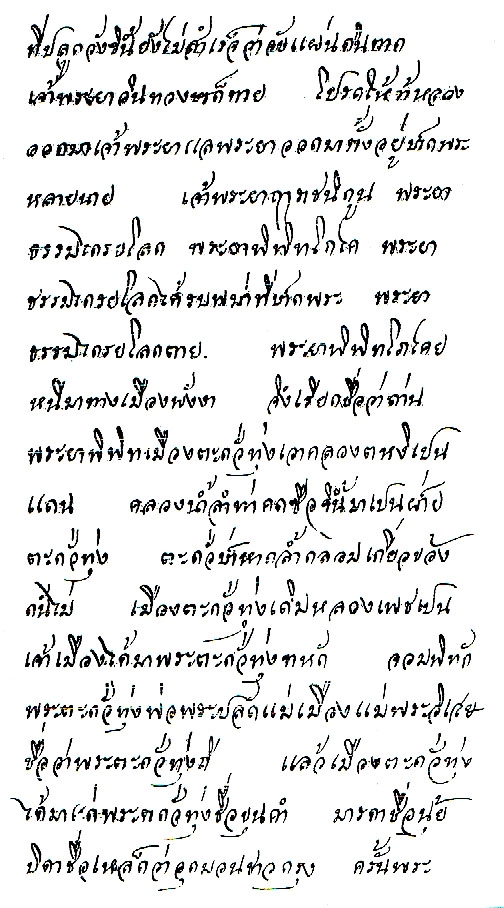 ที่ปลูกวังซีนี้ยังไม่สำเร็จว่าวัยแผ่นดินตาก
เจ้าพระยาอินทวงษก็ตาย โปรดให้ท้าหลวง
ออกมาเจ้าพระยาแลพระยาออกมาตั้งอยู่ปากพระ
หลายนาย เจ้าพระยาฤาทชนิกูน พระยา
ธรรมไตรยโลก พระยาพิพิทโภไค พระยา
ธรรมไตรยโลกได้รบพม่าที่ปากพระ พระยา
ธรรมไตรยโลกตาย พระยาพิพิทโภไคย
หนีมาทางเมืองพังงา จึงเรียกชื่อว่าด่าน
พระยาพิพิทเมืองตะกัวทุ่งเอาคลองตหงีเปน
แดน คลองน้ำลำท่าคดซื่อจีนี้มาเปนฝ่าย
ตะกัวทุ่ง ตะกัวป่าหากล้ำกลอมเกี่ยวของ
กันไม่ เมืองตะกัวทุ่งเดิมหลวงเพชเปน
เจ้าเมืองได้มาพระตะกัวทุ่งทหัก จอมพิทัก
พระตะกัวทุ่งพ่อพระปลัดแม่เมืองแม่พระวิเสย
ชื่อว่าพระตะกัวทุ่งมี แลวเมืองตะกัวทุ่ง
ได้มาแก่พระตกัวทุ่งชื่อขุนคำ มารดาชื่อนุ้ย
บิดาชื่อเหล็กว่าอุกมอนชาวกรุง ครั้นพระ